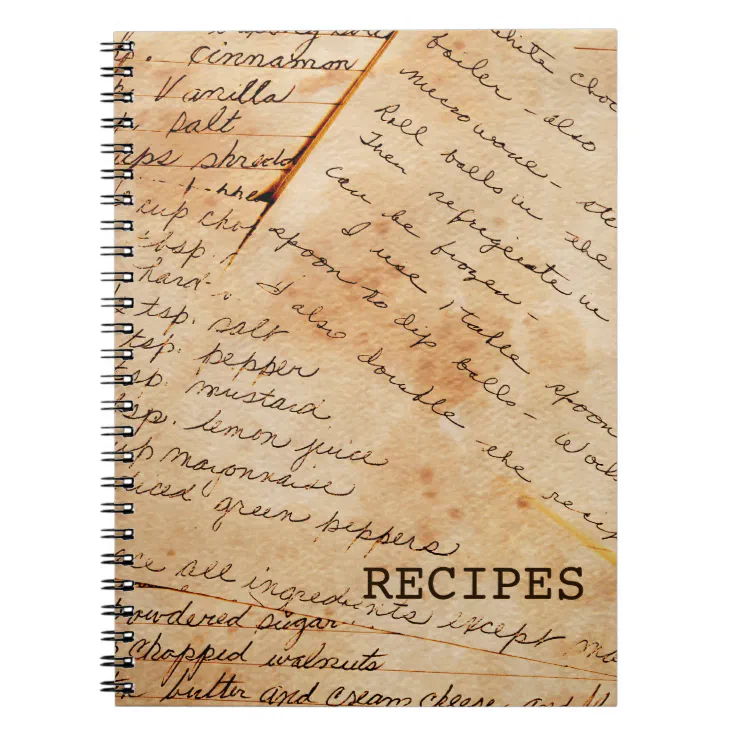 cinnamon
Vanilla
salt
shredd
cup cho
tbsp.
hard
tsp. salt
tsp. pepper
sp. mustard
sp. lemon juice
up mayonnaise
diced green peppers
all ingredients except
powdered sugar
chopped walnuts
butter and cream cheese, and
white choc
boiler - also
microwave - ste
Roll balls in the
Then refrigerate in
can be frozen -
I use 1 table spoon
spoon to dip balls - Work
I also double - the recip
RECIPES